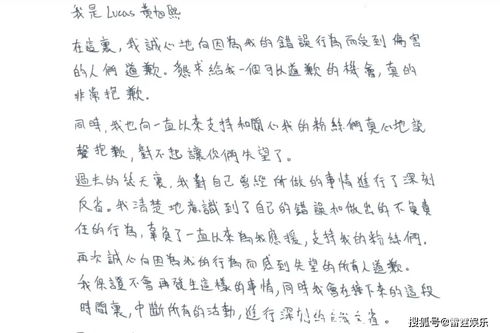 我是Lucas 黃旭熙
在這裏，我誠心地向因為我的錯誤行為而受到傷害
的人們道歉。懇求給我一個可以道歉的機會，真的
非常抱歉。
同時，我也向一直以來支持和關心我的粉絲們真心地說
聲抱歉，對不起讓你們失望了。
過去的幾天裏，我對自己曾經所做的事情進行了深刻
反省。我清楚地意識到了自己的錯誤和做出的不負責
任的行為，辜負了一直以來為我應援，支持我的粉絲們。
再次誠心向因為我的行為而感到失望的所有人道歉。
我保證不會再發生這樣的事情，同時我會在接下來的這段
時間裏，中斷所有的活動，進行深刻的
搜狐号@雷达娱乐